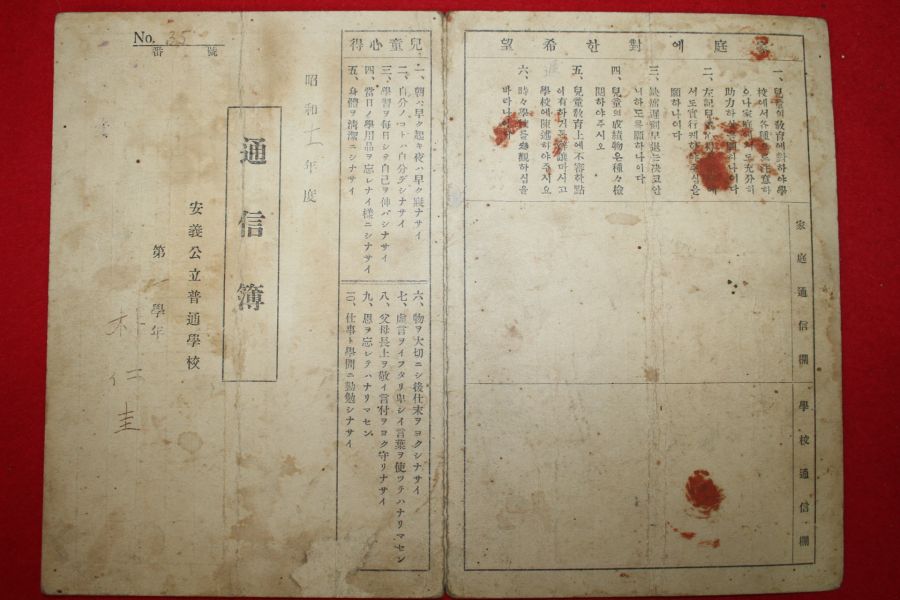 庭에對한希望
一、兒童의教育에對하야學
校에서各種으로注意하
오나家庭에서도充分히
助力하심을願하나이다
二、左記兒童
서도實行케하야주심을
願하나이다
三、缺席遲刻早退는決코안
니하도록願하나이다
四、兒童의成績物은種々檢
閱하야주시오
五、兒童教育上에不審한點
이有하거든躊躇마시고
學校에陳述하야주시오
六、時々學校를參觀하심을
바라나이다
家庭通信欄
學校通信欄
兒童心得
一、朝ハ早ク起キ夜ハ早ク寢ナサイ
二、自分ノコトハ自分デシナサイ
三、學習ヲ每日シテ自己ヲ伸バシナサイ
四、當日ノ學用品ヲ忘レナイ樣ニシナサイ
五、身體ヲ淸潔ニシナサイ
六、物ヲ大切ニシ後仕末ヲヨクシナサイ
七、虛言ヲイフタリ卑シイ言葉ヲ使ツテハナリマセン
八、父母長上ヲ敬イ言付ヲヨク守リナサイ
九、恩ヲ忘レテハナリマセン
一〇、仕事ト學問ニ勤勉シナサイ
昭和十一年度
通信簿
安義公立普通學校
第一學年
朴仁圭
No. 35
番號